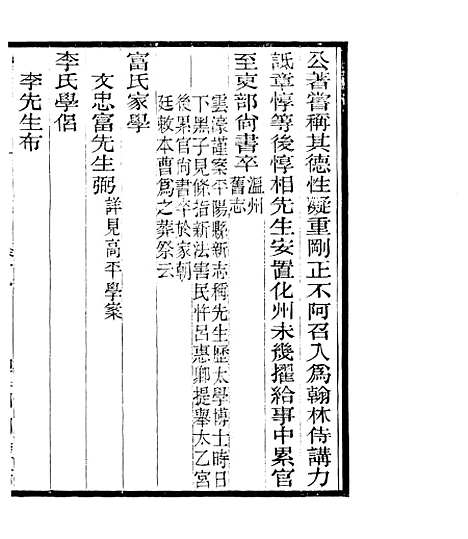 公著嘗稱其德性凝重剛正不阿召入爲翰林侍講力
詆章惇等後惇相先生安置化州未幾擢給事中累官
至吏部尚書卒溫州舊志
雲濠謹案平陽縣新志稱先生歷太學博士時日
下黑子見條指新法害民忤呂惠卿提舉太乙宮
後累官尚書卒於家朝
廷敕本曹爲之葬祭云
富氏家學
文忠富先生弼詳見高平學案
李氏學侶
李先生布